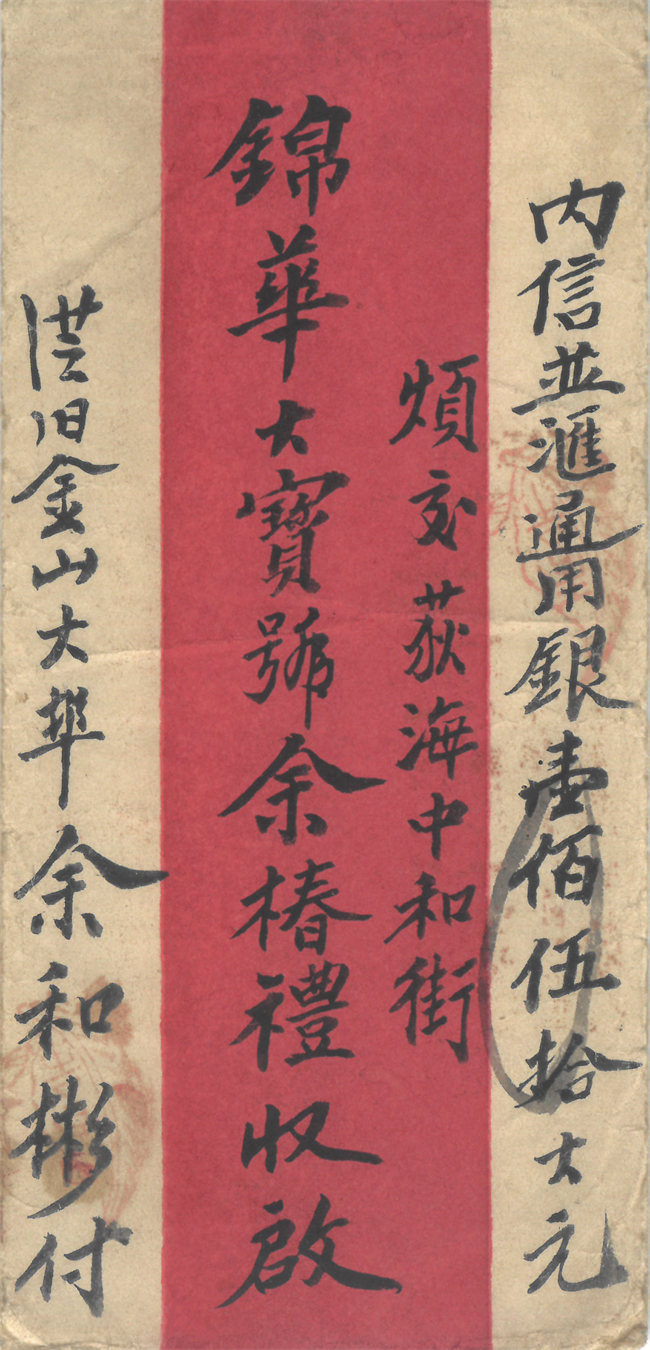 内信並滙通用銀壹佰伍拾大元
煩交荻海中和街
錦華大寶號余椿禮収啟
旧金山大埠余和彬付